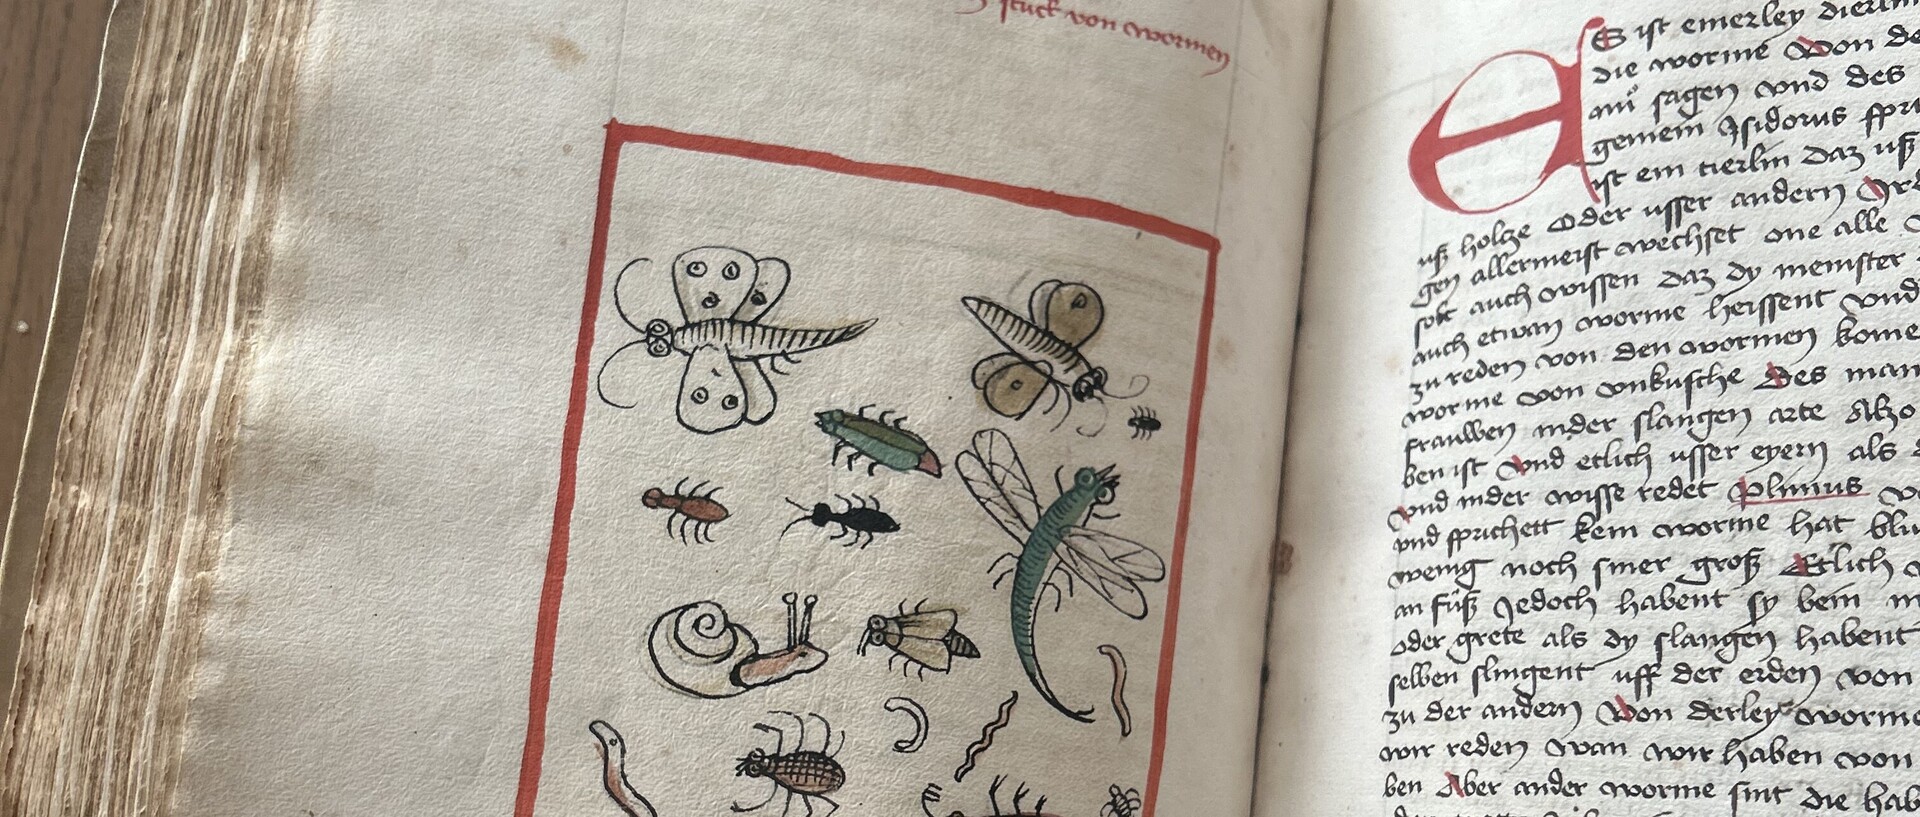 stuck von wormen
ES ist einerley dierlin
die worme Von de
an sagen vnd des
gemein Jsidorus spri
ist ein tierlin daz uß
uß holtze Oder usser andern
gen allermeist wechset one alle
solt auch wissen daz dy meinster
auch etwan worme heissent vnd
zu reden von den wormen kome
worme von vnkusche Des man
frauwen inder slangen arte Also
ben ist Vnd etlich usser eyern als
vnd inder wisse redet Plinius
vnd sprichett kein worme hat blu
wenig noch siner groß Etlich
an fuß Jedoch habent sy bein
oder grete als dy slangen habent
selben slingent uff der erden von
zu der andern Von derley worme
wir reden wan wir haben von
ben Aber ander worme sint die hab